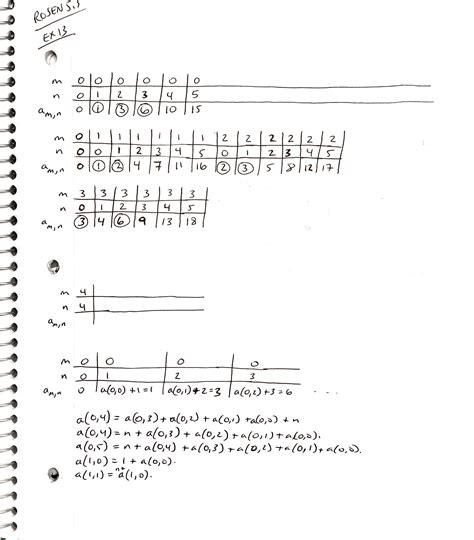 ROSEN 5.3
EX 13
m 0 0 0 0 0 0
n 0 1 2 3 4 5
a_{m,n} 0 1 3 6 10 15
m 0 1 1 1 1 1 1 2 2 2 2 2 2
n 0 0 1 2 3 4 5 0 1 2 3 4 5
a_{m,n} 0 1 2 4 7 11 16 2 3 5 8 12 17
m 3 3 3 3 3 3
n 0 1 2 3 4 5
a_{m,n} 3 4 6 9 13 18
m 4
n 4
a_{m,n}
m 0 0 0 0
n 0 1 2 3
a_{m,n} 0 a(0,0)+1=1 a(0,1)+2=3 a(0,2)+3=6 ....
a(0,4) = a(0,3)+a(0,2)+a(0,1)+a(0,0)+n
a(0,4) = n+a(0,3)+a(0,2)+a(0,1)+a(0,0).
a(0,5) = n+a(0,4)+a(0,3)+a(0,2)+a(0,1)+a(0,0).
a(1,0) = 1+a(0,0).
a(1,1) = n+a(1,0).